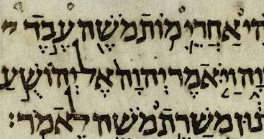 הִי אַחֲרֵי מוֹת מֹשֶׁה עֶבֶד
וָה וַיֹּאמֶר יְהוָה אֶל יְהוֹשֻׁעַ
נוּן מְשָׁרֵת מֹשֶׁה לֵאמֹר׃